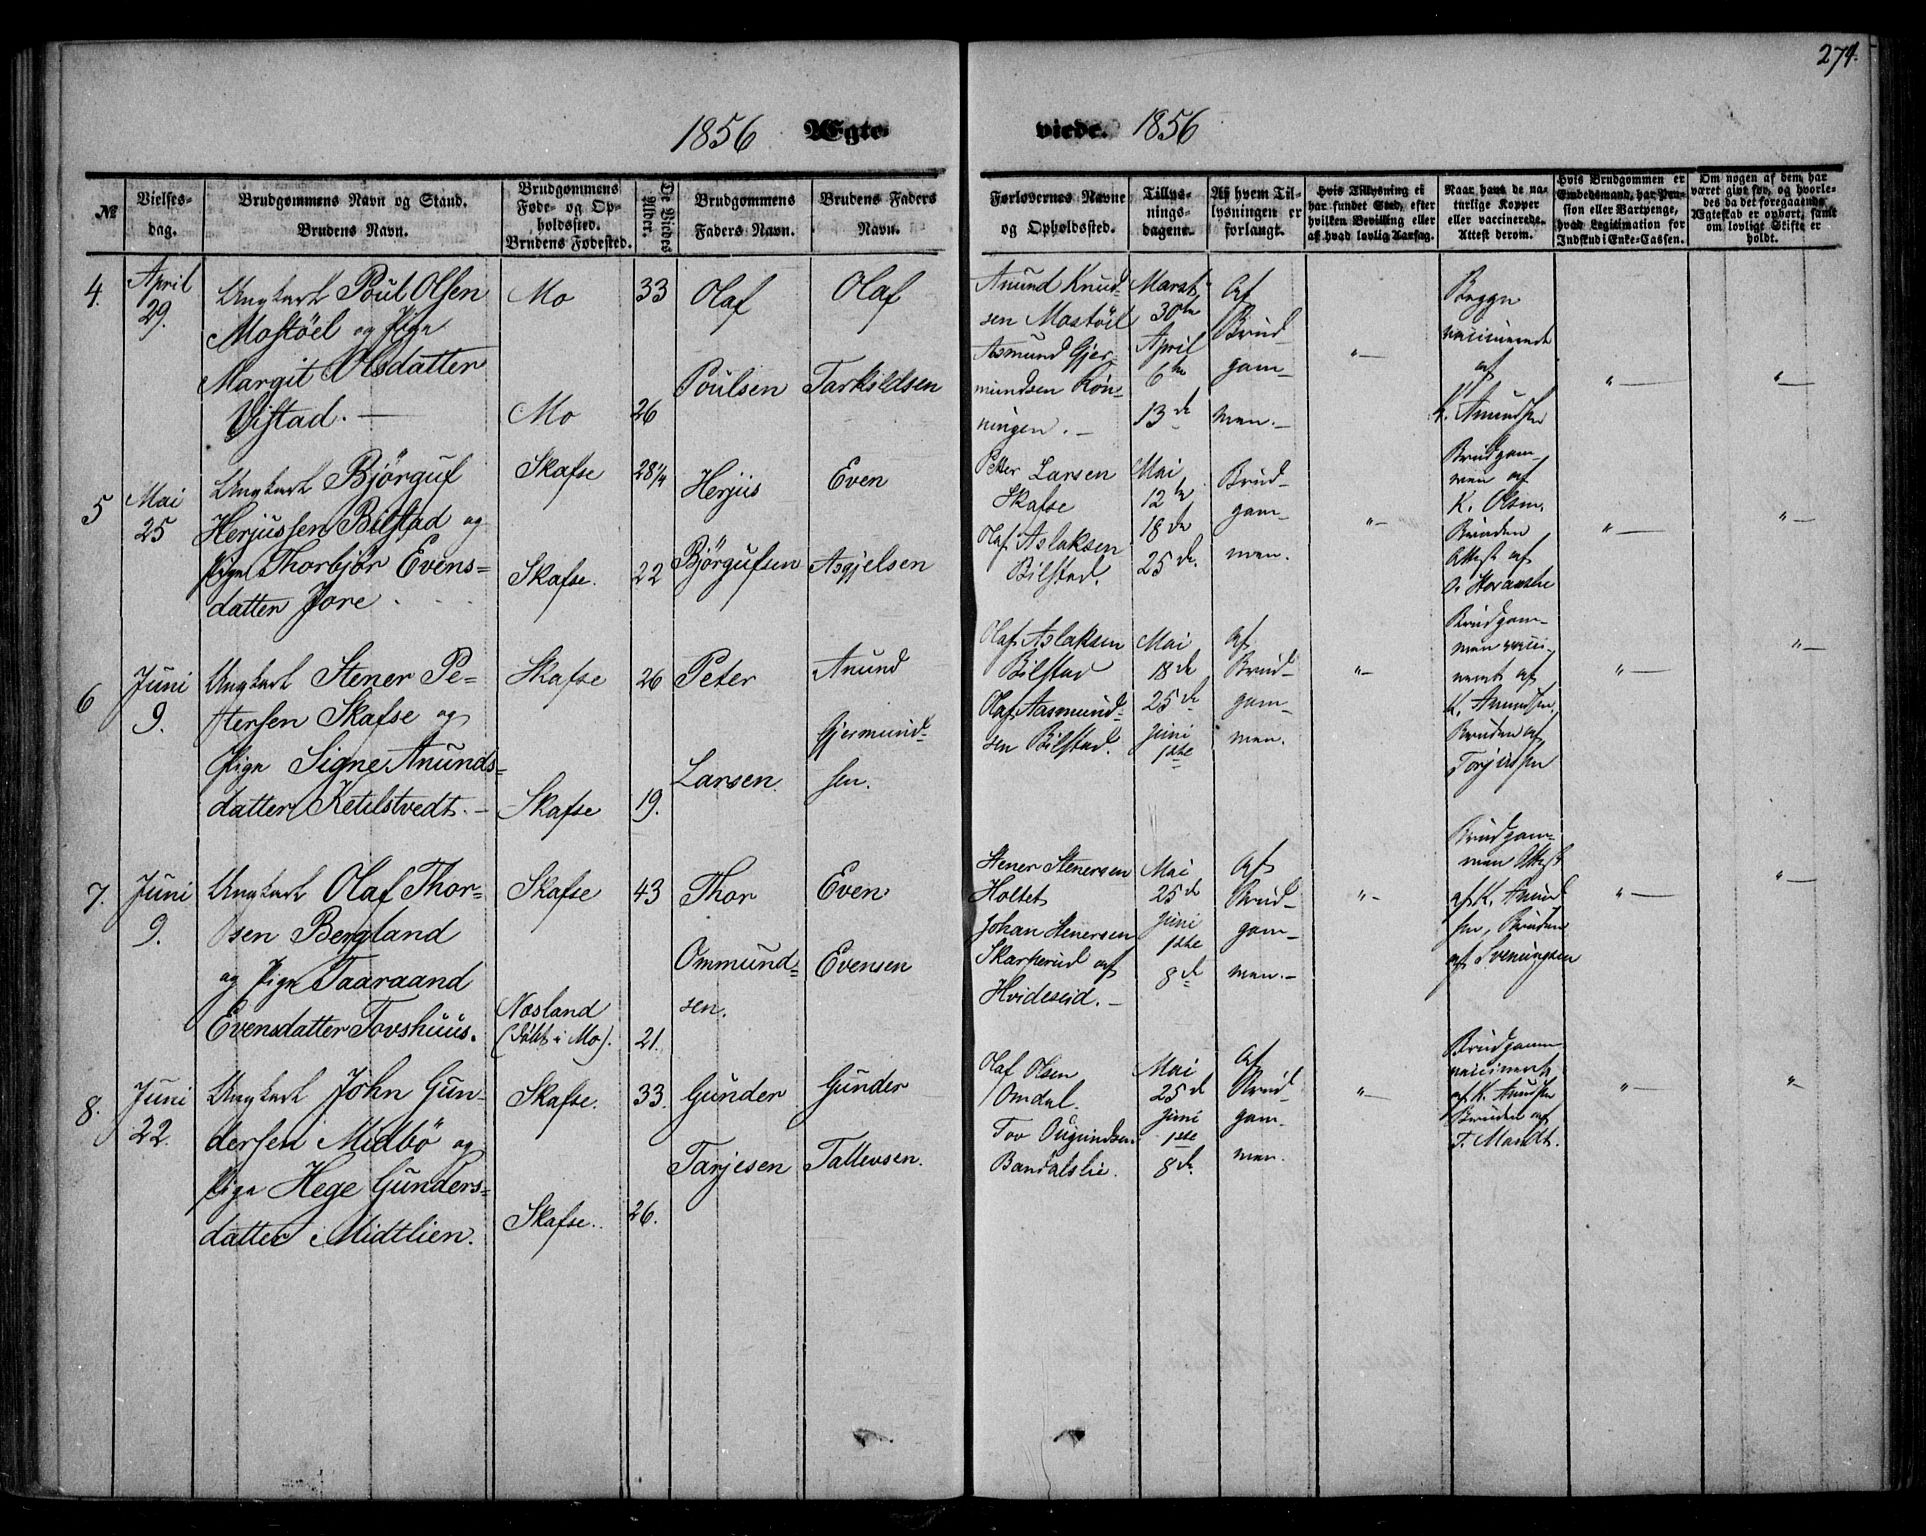 274.
1856 Ægte-
viede. 1856
№
Vielses-
dag.
Brudgommens Navn og Stand.
Brudens Navn.
Brudgommens
Føde- og Op-
holdssted.
Brudens Fødested.
De Viedes
Alder.
Brudgommens
Faders Navn.
Brudens Faders
Navn.
Forlovernes Navne
og Opholdssted.
Tillys-
nings-
dagene.
Af hvem Til-
lysningen er
forlangt.
Hvis Tillysning ei
har fundet Sted, efter
hvilken Bevilling eller
af hvad lovlig Aarsag.
Naar havt de na-
turlige Kopper
eller vaccinerede.
Attest derom.
Hvis Brudgommen er
Embedsmand, har Pen-
sion eller Vartpenge,
hvad Legitimation for
Indskud i Enke-Cassen.
Om nogen af dem har
været givt før, og hvorle-
des da det foregaaende
Ægteskab er ophørt, samt
om lovligt Skifte er
holdt.
4.
April
29.
Ungkarl Poul Olsen
Mostöel og Pige
Margit Olsdatter
Vistad. —
Mo
Mo
33
26
Olaf
Poulsen
Olaf
Tarkildsen
Anund Knud-
sen Mostöel
Asmund Gjer-
mundsen Rön-
ningen. —
Marts
30te
April
6te
13de
Af
Brud-
gom-
men. —
"—
Begge
vaccinerede
af
K. Amundsen
"—
"—
5
Mai
25
Ungkarl Björguf
Herjussen Bilstad og
Pige Thorbjör Evens-
datter Jore
Skafse
Skafse.
28¼
22
Herjus
Björgufsen
Even
Asgjelsen
Petter Larsen
Skafse
Olaf Aslaksen
Bilstad.
Mai
12te
18de
25de.
Brud-
gom-
men.
"—
Brudgom-
men af
K. Olsen,
Bruden
Attest af
"—
"—
6
Juni
9.
Ungkarl Stener Pe-
tersen Skafse og
Pige Signe Anunds-
datter Ketilstvedt. —
Skafse
Skafse
26
19.
Peter
Larsen.
Anund
Gjermund-
sen.
Olaf Aslaksen
Bilstad
Olaf Aasmund-
sen Bilstad.
Mai
18de
25de
Juni
1ste
Af
Brud-
gom-
men.
"—
Brudgom-
men vacci-
neret af
K. Amundsen,
Bruden af
Torjussen
"—
"—
7.
Juni
9.
Ungkarl Olaf Thor-
sen Bergland
og Pige Taaraand
Evensdatter Tovshuus.
Skafse
Næsland
(födt i Mo).
43
21.
Thor
Ommund-
sen.
Even
Evensen
Stener Stenersen
Holtet
Johan Stenersen
Skarherud af
Hvideseid. —
Mai
25de
Juni
1ste
8de
Af
Brud-
gom-
men. —
"—
Brudgom-
men Attest
af K. Amund
sen, Bruden
af Sveningsen
"—
"—
8.
Juni
22.
Ungkarl John Gun-
dersen Midbö og
Pige Hege Gunders-
datter Midtlien.
Skafse.
Skafse.
33.
26.
Gunder
Tarjesen
Gunder
Tallevsen.
Olaf Olsen
Omdal.
Tov Ougundsen
Bandatslie.
Mai
25de
Juni
1ste
8de.
Af
Brud-
gom-
men.
"—
Brudgommen
vaccineret
af K. Amundsen
Bruden af
T. Mandt.
"—
"—